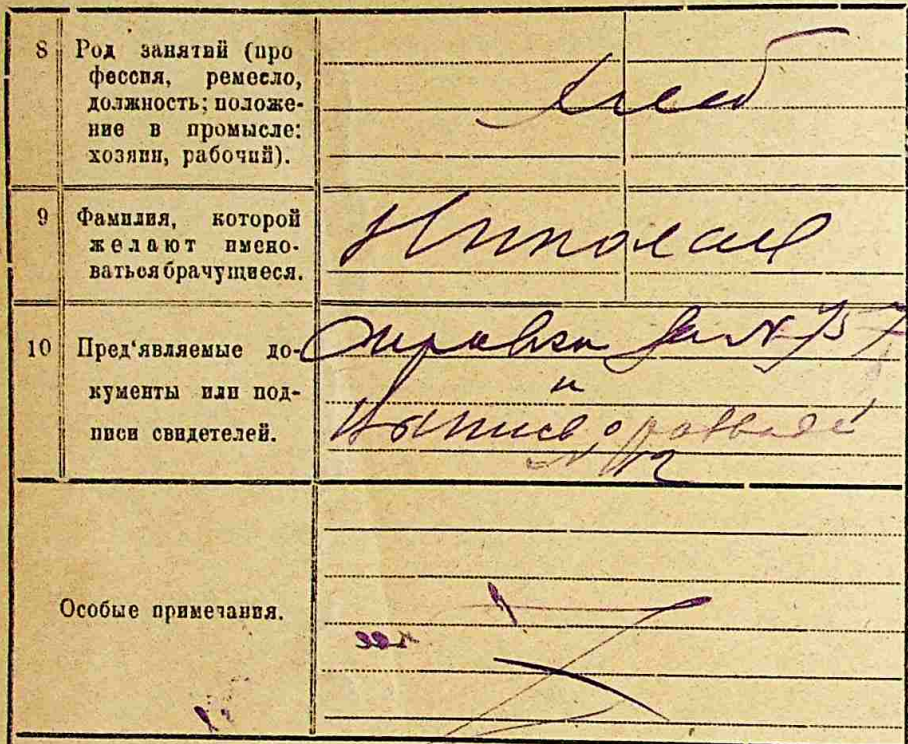 8 Род занятий (про
фессия, ремесло,
должность; положе-
ние в промысле:
хозяин, рабочий).
хлеб
9 Фамилия, которой
желают имено-
ваться брачущиеся.
10 Пред'являемые до-
кументы или под-
писи свидетелей.
Справка за № 757
и
Выпись о разводе
Особые примечания.